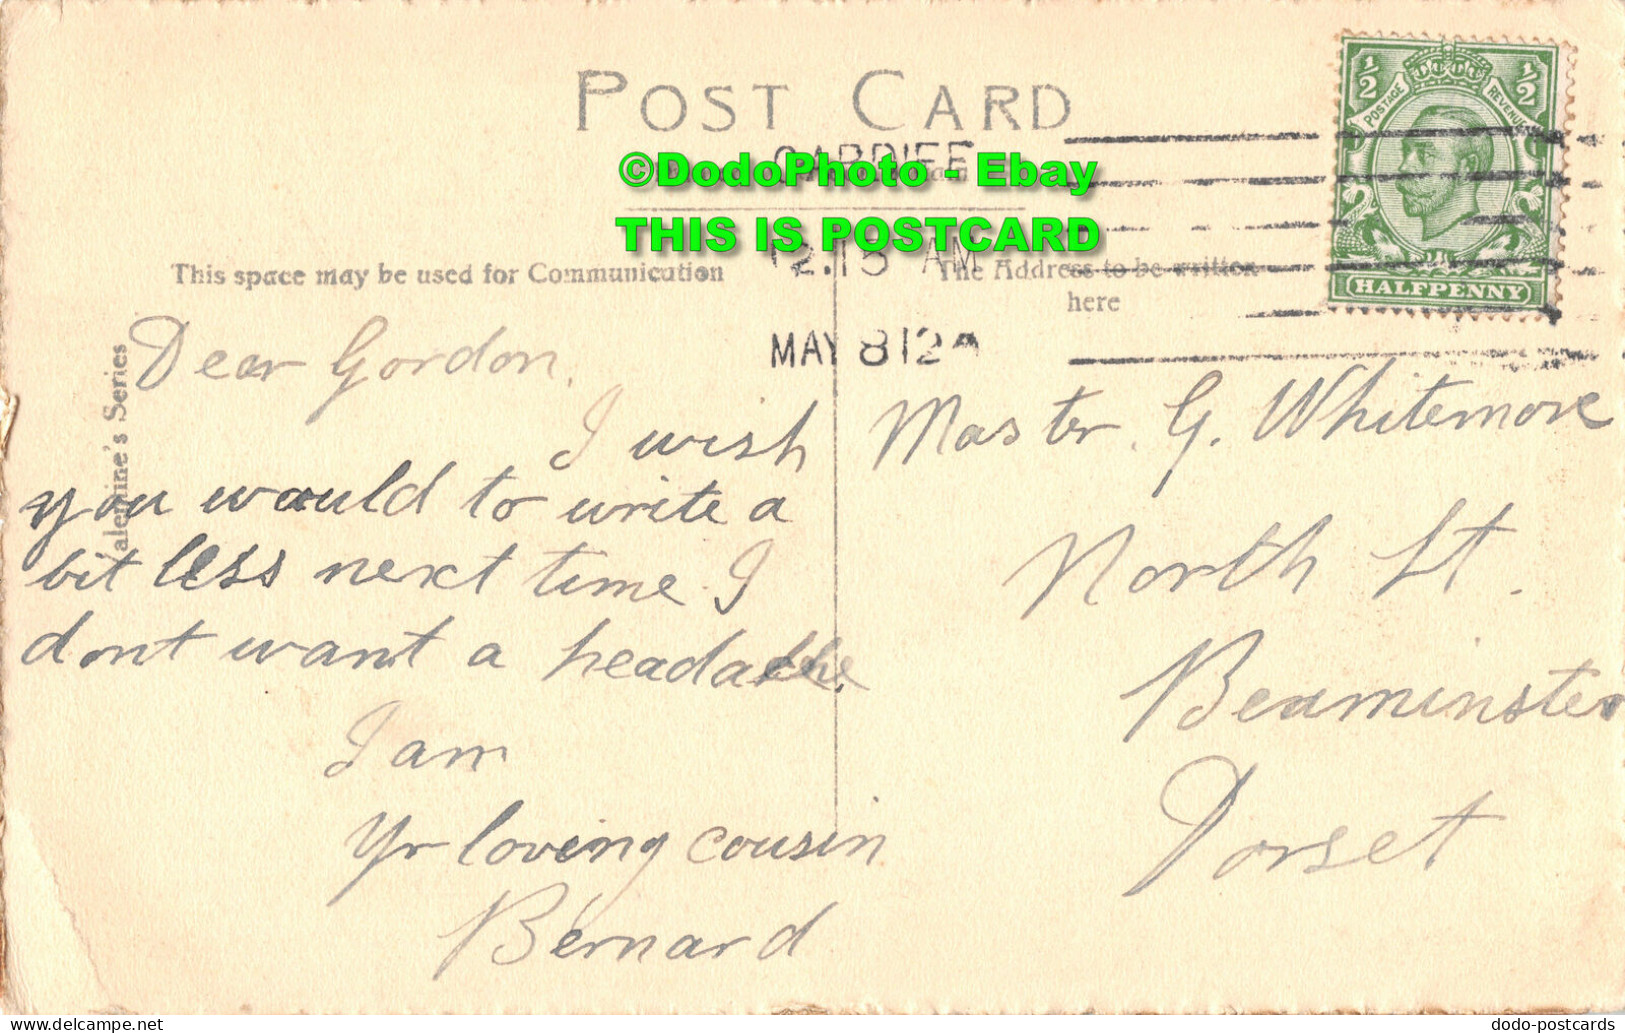 POST CARD
CARDIFF
©DodoPhoto - Ebay
THIS IS POSTCARD
12.15 AM
MAY 8 12
This space may be used for Communication
The Address to be written
here
Valentine's Series
1/2 1/2
POSTAGE REVENUE
HALFPENNY
Dear Gordon.
I wish
you would to write a
bit less next time. I
dont want a headache.
I am
Yr loving cousin
Bernard
Master. G. Whitemore
North St.
Beaminster
Dorset
www.delcampe.net
dodo-postcards